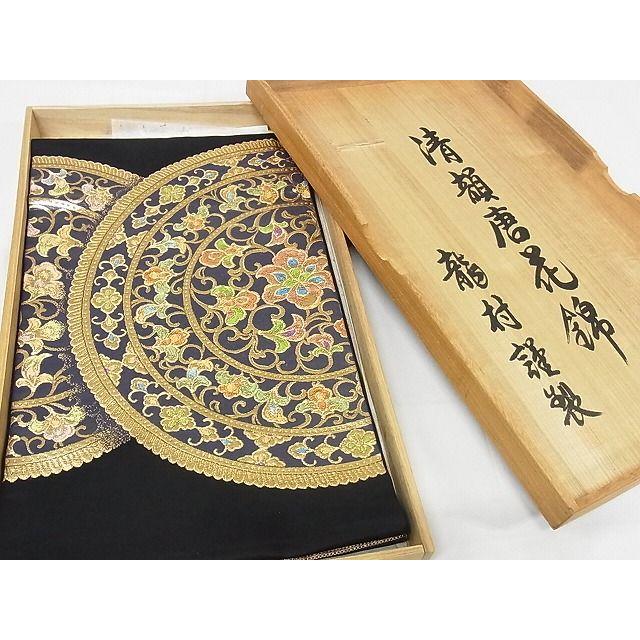 清韻唐花錦
龍村謹製